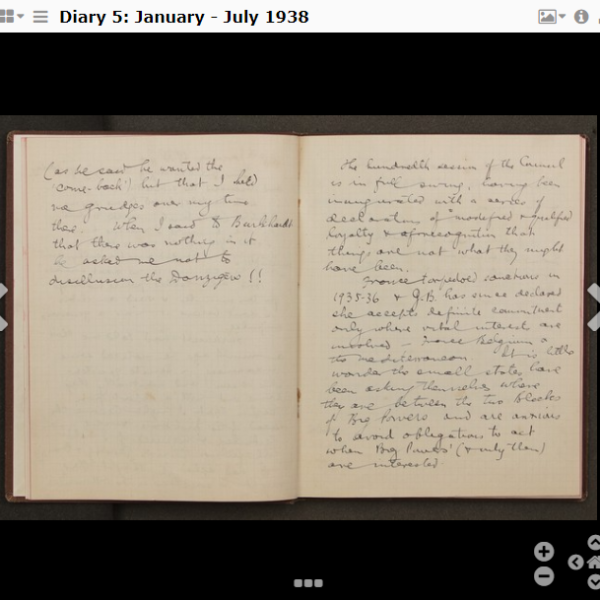 Diary 5: January - July 1938
(as he said he wanted the
'come-back') but that I held
no grudges over my time
there. When I said to Burkhardt
that there was nothing in it
he asked me not to
disillusion the Danzigers!!
The hundredth session of the Council
is in full swing, having been
inaugurated with a series of
declarations of "modified & qualified
loyalty & a recognition that
things are not what they might
have been.
France torpedoed sanctions in
1935-36 & G.B. has since declared
she accepts definite commitment
only where vital interests are
involved - France Belgium &
the Mediterranean. It is little
wonder the small states have
been asking themselves where
they are between the two Blocks
of Big Powers and are anxious
to avoid obligations to act
when Big Powers' (& only then)
are interested